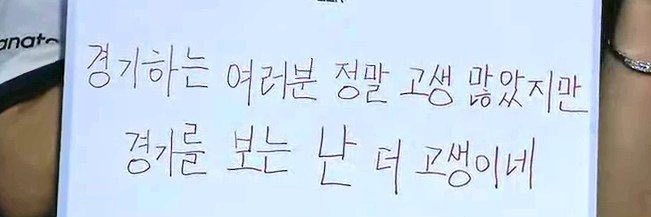 anato
경기하는 여러분 정말 고생 많았지만
경기를 보는 난 더 고생이네